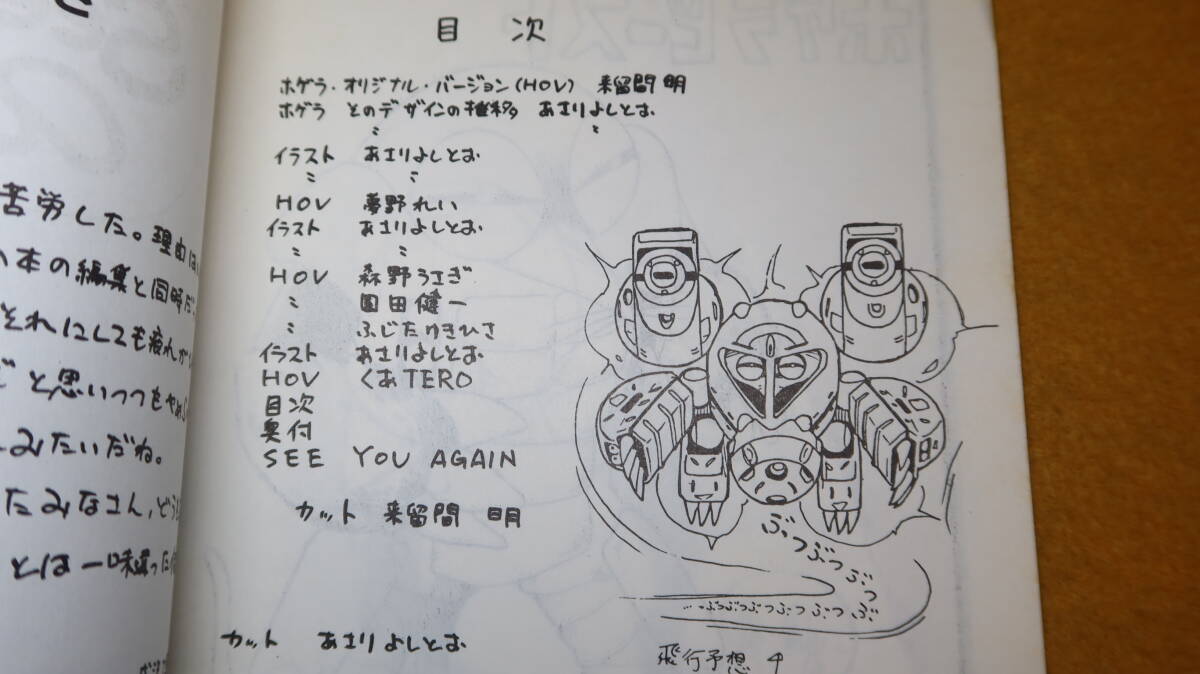 苦労した。理由は
本の編集と同時だ
それにしても疲れが
と思いつつもやめ
みたいだね。
たみなさん、どう
とは一味違った
目次
ホゲラ・オリジナル・バージョン(HOV) 来留間 明
ホゲラ とのデザインの推移 あさりよしとお
〃 〃
イラスト あさりよしとお
〃 〃
HOV 夢野れい
イラスト あさりよしとお
〃 〃
HOV 森野うさぎ
〃 園田健一
〃 ふじたゆきひさ
イラスト あさりよしとお
HOV くあTERO
目次
奥付
SEE YOU AGAIN
カット 来留間 明
ぶつぶつぶつぶ
…ぶつぶつぶつぶつぶつぶ
カット あさりよしとお
飛行予想